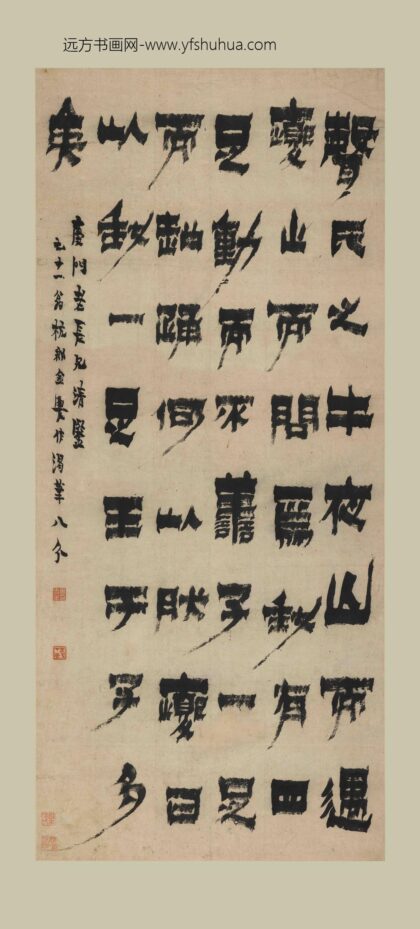 远方书画网-www.yfshuhua.com
聲氏之牛夜亡而遇
夔止而問焉我有四
足動而不善子一足
而超踊何以肰夔曰
以我一足王于子多
矣
老長兄清鑒
七十一翁杭郡金農作渴筆八分